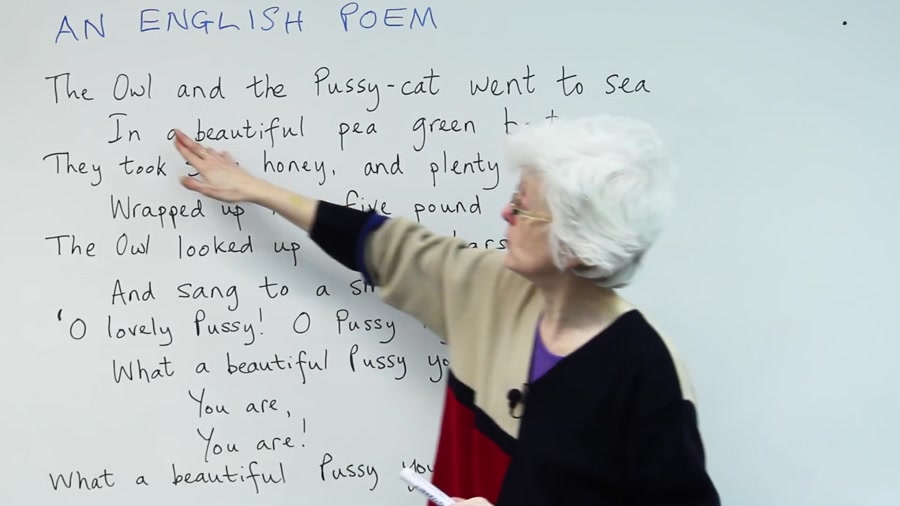 AN ENGLISH POEM
The Owl and the Pussy-cat went to sea
In a beautiful pea green
They took honey, and plenty
Wrapped up five pound
The Owl looked up
And sang to a
'O lovely Pussy! O Pussy
What a beautiful Pussy
You are,
You are!
What a beautiful Pussy